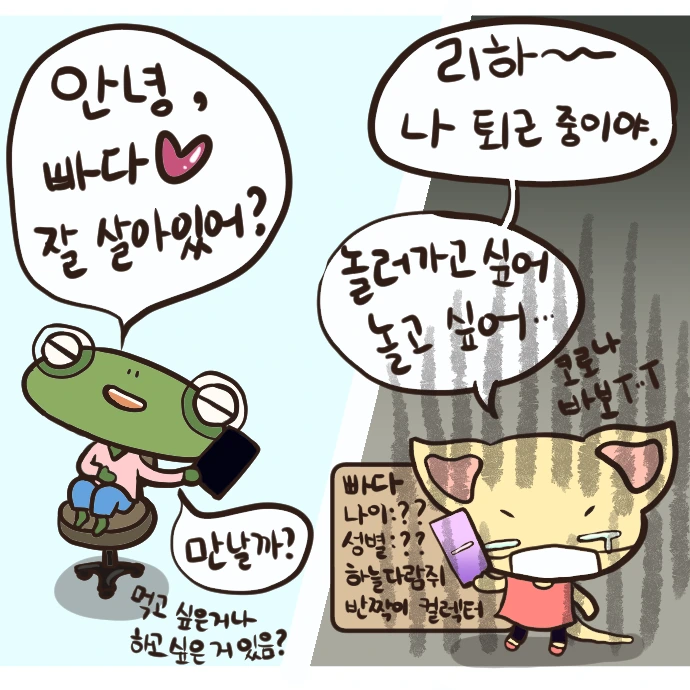 안녕,
빠다
잘 살아있어?
만날까?
먹고 싶은거나
하고싶은 거 있음?
리하~~
나 퇴근 중이야.
놀러가고 싶어
놀고 싶어...
코로나
바보 T..T
빠다
나이:??
성별:??
하늘다람쥐
반짝이 컬렉터